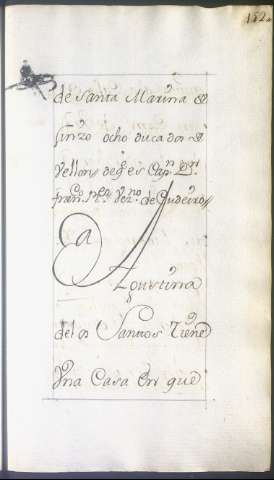 152
de Santa Marina de
sinzo ocho ducados de
Vellon de q.e es Cap.n D.n
fran.co Vez.no de Gudeiros
A
Agustina
de los Santos tiene
Vna Casa en que